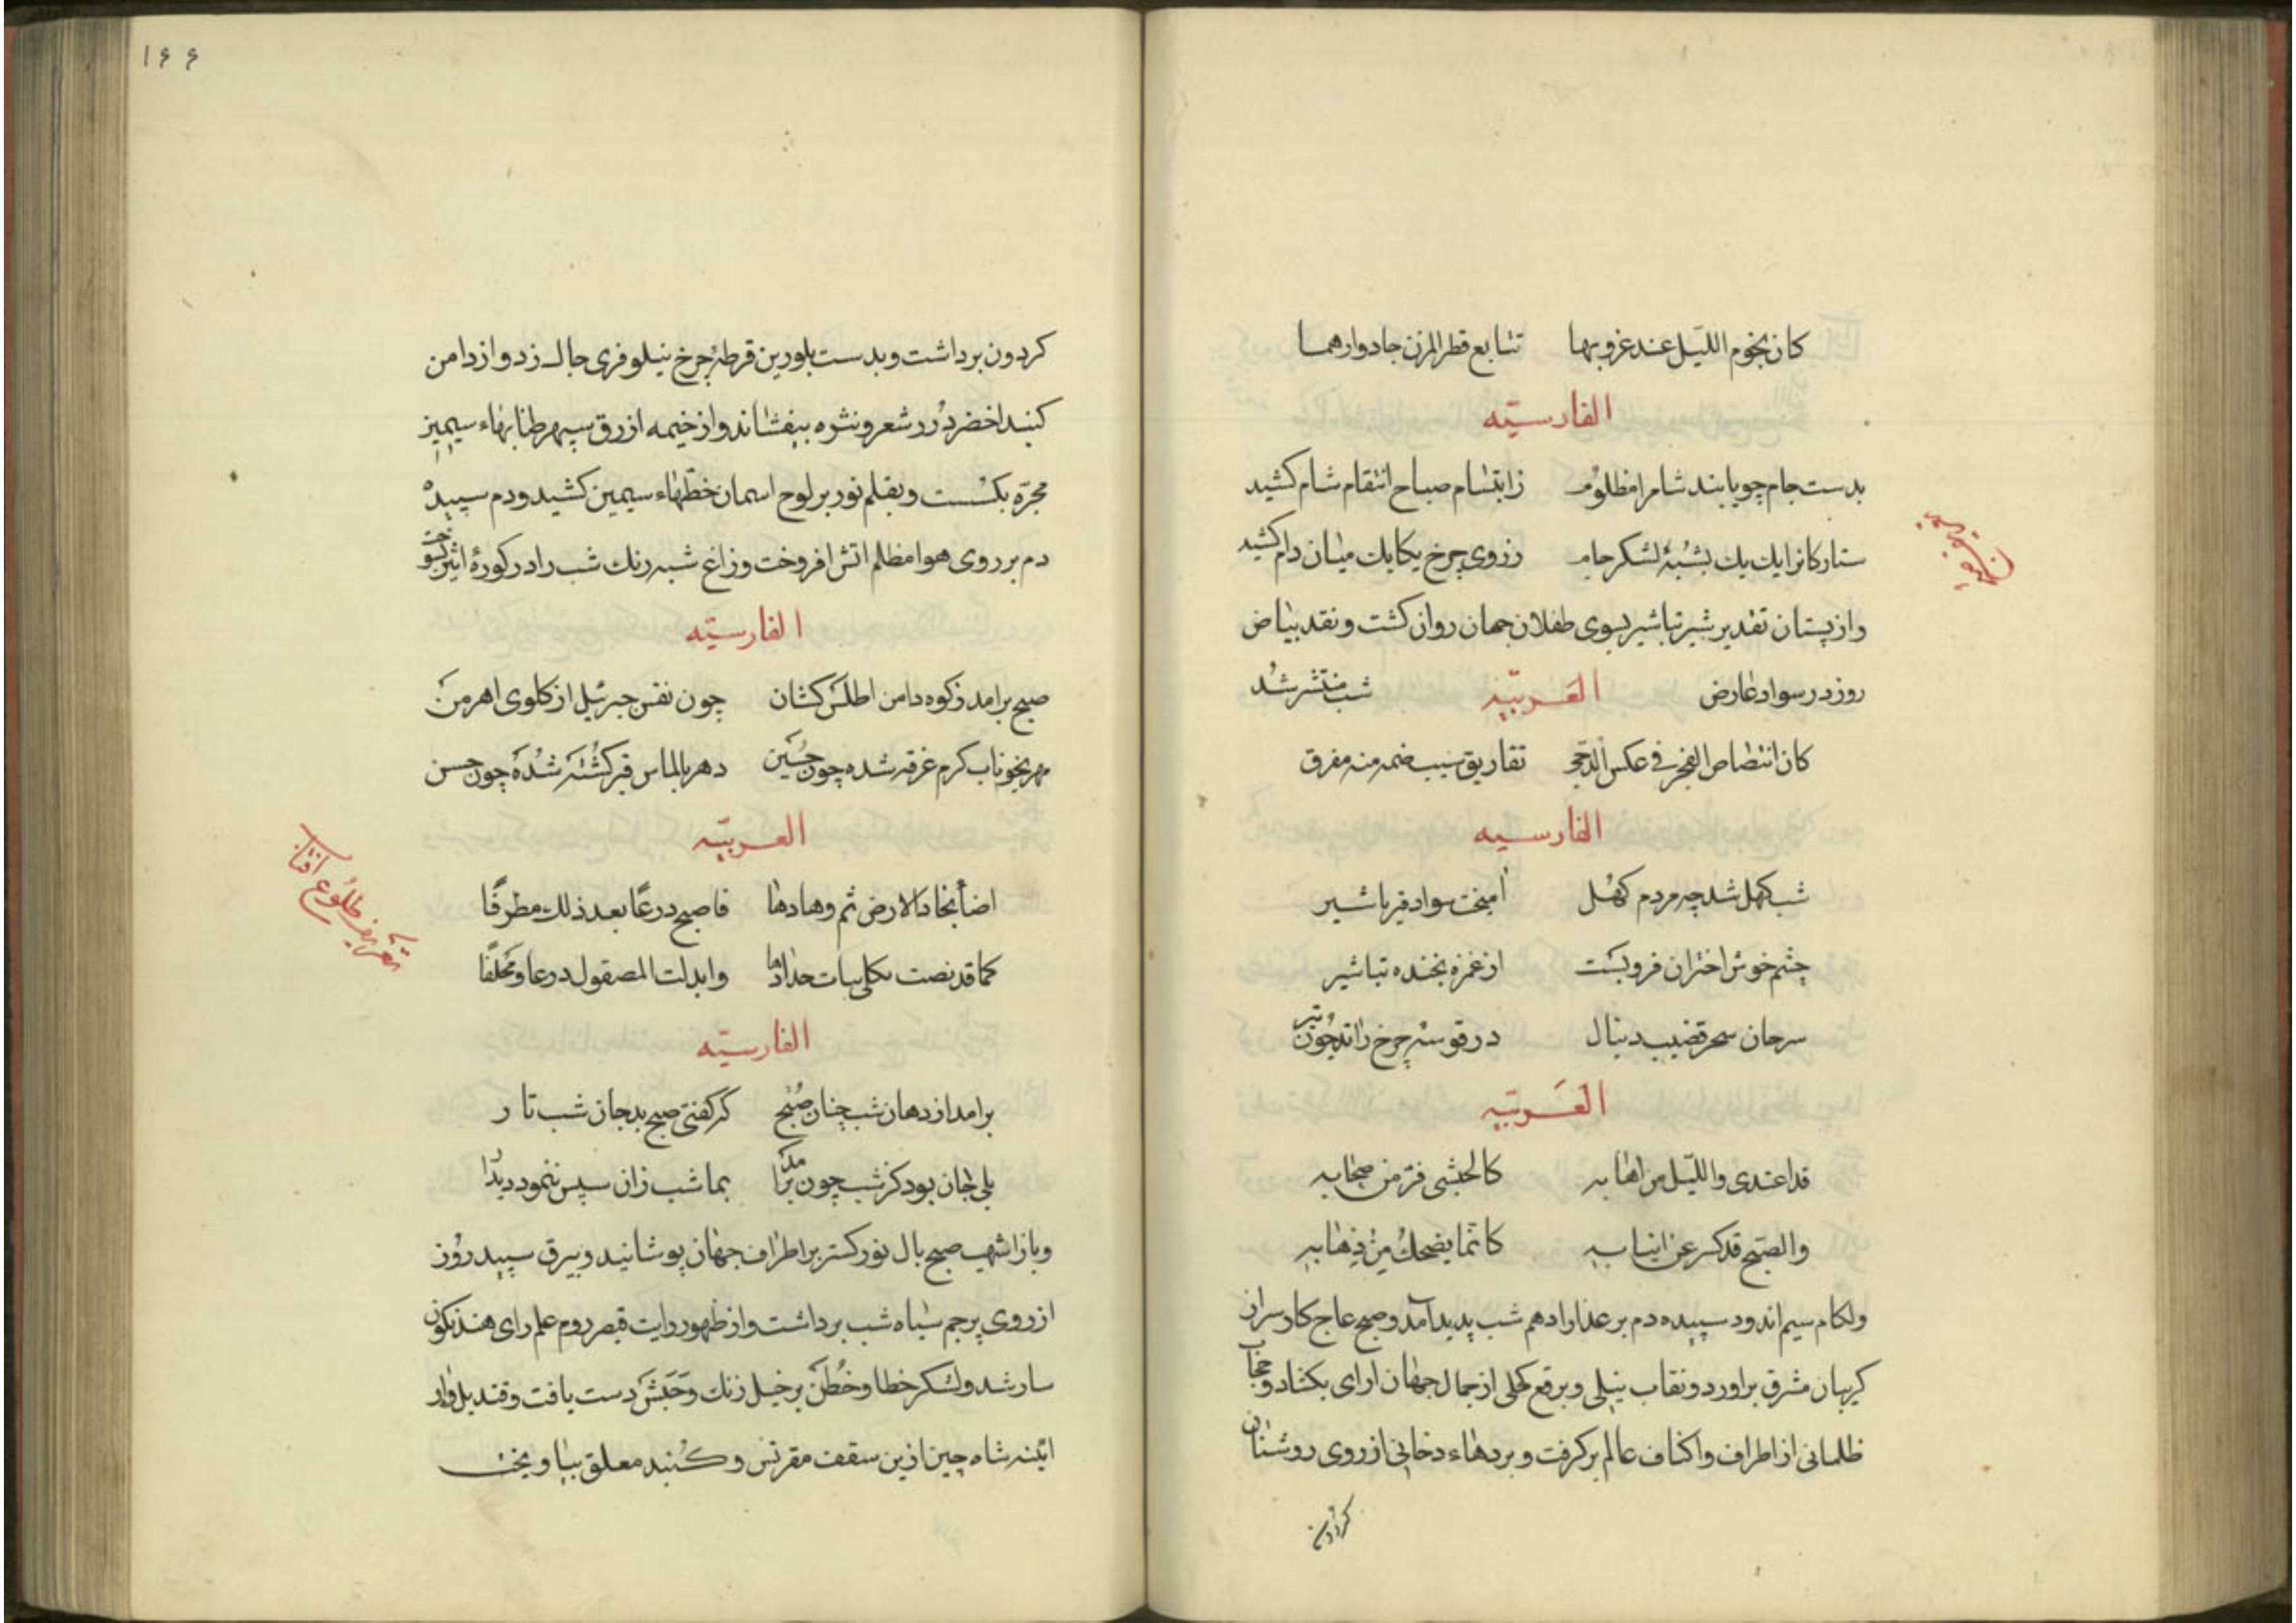 كان نجوم الليل عند غروبها تتابع قطر المزن جاد وارهما
الفارسيّه
بدست جام چو یابند شام را مظلوم ز ابتسام صباح انتقام شام کشید
ستارکانرا یك یك بشبۀ لشکر جام ز روی چرخ یکایك میان دام کشید
و از پستان تقدیر شیر تباشیر بسوی طفلان جهان روان کشت و نقد بیاض
روز در سواد عارض العَربیّه شب منتشر شد
كان انتضاص الفجر فى عكس الدجى تفاريق شيب ضمه منه مفرق
الفارسیه
شب کهل شد چه مردم کهل امیخت سواد قیر با شیر
چشم خوش اختران فرو بست از غمزه بخنده تباشیر
سرحان سحر قضیب دنبال در قوسۀ چرخ راند چون تیر
العَربیّه
قد اغتدى والليل من اهابه كالحبشى فرّ من صحابه
والصبح قد كسر عن انيابه كانما يضحك من ذهابه
و لکام سیم اندود سپیده دم بر عذار ادهم شب پدید آمد و صبح عاج کار سر از
کریبان مشرق براورد و نقاب نیلی و برقع کحلی از جمال جهان ارای بکشاد و حجاب
ظلمانی از اطراف و اکناف عالم برکرفت و بردهاء دخانی از روی روشنان
کردون
۱۶۶
کردون برداشت و بدست بلورین قرطۀ چرخ نیلوفری جاك زد و از دامن
کنبد اخضر دُرر شعر و نثره بیفشاند و از خیمه ازرق سپهر طنابهاء سیمین
مجرّه بکسست و بقلم نور بر لوح اسمان خطّهاء سیمین کشید و دم سپیده
دم بر روی هوا مظلم اتش افروخت و زاغ شبه رنك شب را در کورۀ اثیر بسوخت
الفارسیّه
صبح برامد ز کوه دامن اطلس کشان چون نفس جبرئیل از کلوی اهرمن
مهر بخوناب کرم غرقه شده چون حُسَین دهر بالماس قیر کشته شده چون حسن
العربیّه
اضأ نجاد الارض ثم وهادها فاصبح درعًا بعد ذلك مطرفًا
كما قد نضت كحلى بيات حدادها وابدلت المصقول درعا ومحلفًا
الفارسیّه
برامد از دهان شب چنان صُبح که کفتی صبح بد جان شب تار
بلی جان بود کز شب چون برامد بما شب زان سپس ننمود دیدار
و باز اشهب صبح بال نور کستر بر اطراف جهان پوشانید و بیرق سپید روز
از روی پرچم سیاه شب برداشت و از ظهور رایت قیصر روم علم رای هند نکون
سار شد و لشکر خطا و خُطَن بر خیل زنك و حَبَش دست یافت و قندیل وار
ائینۀ شاه چین ازین سقف مقرنس و کنبد معلق بیاویخت
تعریف طلوع افتاب